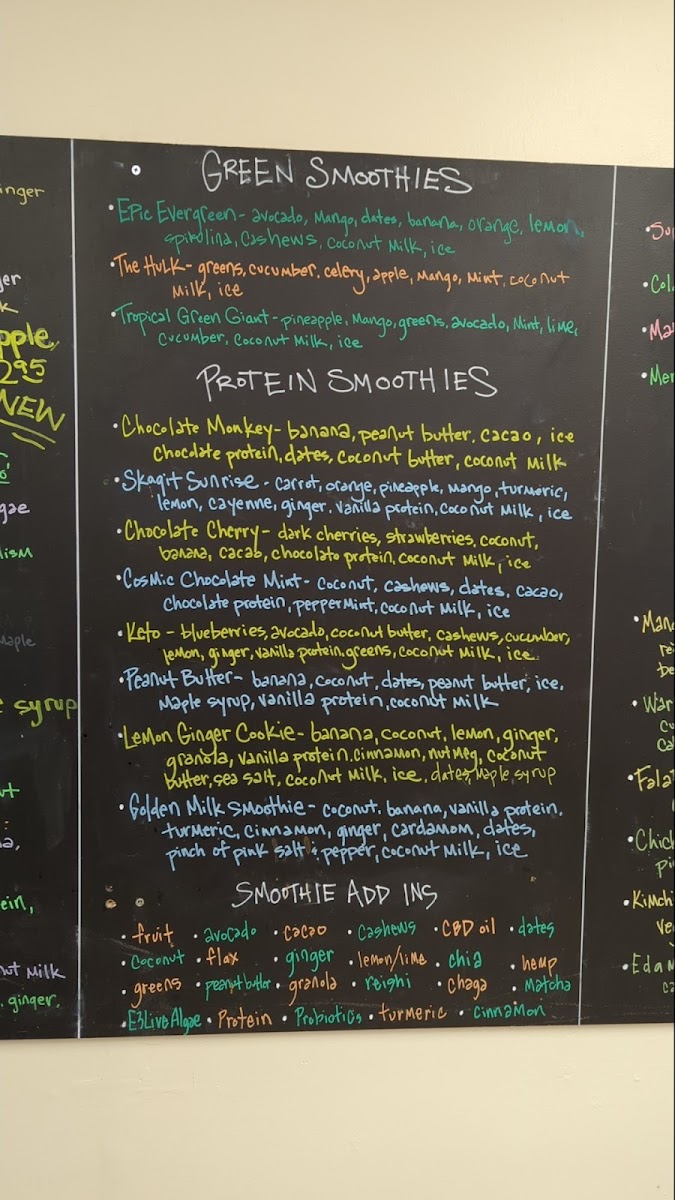 GREEN SMOOTHIES
• Epic Evergreen - avocado, Mango, dates, banana, orange, lemon,
spirolina, Cashews, Coconut Milk, ice
• The Hulk - greens, cucumber, celery, apple, Mango, Mint, coconut
Milk, ice
• Tropical Green Giant - pineapple, Mango, greens, avocado, Mint, lime,
Cucumber, Coconut Milk, ice
PROTEIN SMOOTHIES
• Chocolate Monkey - banana, peanut butter, cacao, ice
Chocolate protein, dates, coconut butter, coconut Milk
• Skagit Sunrise - carrot, orange, pineapple, Mango, turmeric,
lemon, cayenne, ginger, vanilla protein, coconut Milk, ice
• Chocolate Cherry - dark cherries, strawberries, coconut,
banana, cacao, chocolate protein, coconut Milk, ice
• Cosmic Chocolate Mint - Coconut, cashews, dates, cacao,
chocolate protein, pepperMint, coconut Milk, ice
• Keto - blueberries, avocado, coconut butter, cashews, cucumber,
lemon, ginger, vanilla protein, greens, coconut Milk, ice
• Peanut Butter - banana, coconut, dates, peanut butter, ice,
Maple syrup, vanilla protein, coconut Milk
• Lemon Ginger Cookie - banana, coconut, lemon, ginger,
granola, vanilla protein, cinnamon, nutmeg, coconut
butter, sea salt, coconut Milk, ice, dates, Maple syrup
• Golden Milk Smoothie - coconut, banana, vanilla protein,
turmeric, cinnamon, ginger, cardamom, dates,
pinch of pink salt + pepper, coconut Milk, ice
SMOOTHIE ADD INS
• fruit • avocado • cacao • Cashews • CBD oil • dates
• Coconut • flax • ginger • lemon/lime • chia • hemp
• greens • peanut butter • granola • reishi • chaga • Matcha
• E3Live Algae • Protein • Probiotics • turmeric • cinnamon
inger
ger
k
pple,
2.95
NEW
gae
lism
Maple
syrup
ut
a,
ein,
nut Milk
, ginger,
• Su
• Col
• Ma
• Mer
• Man
be
• War
Cu
Ca
• Fala
• Chick
pi
• Kimchi
ve
• Edam
ca